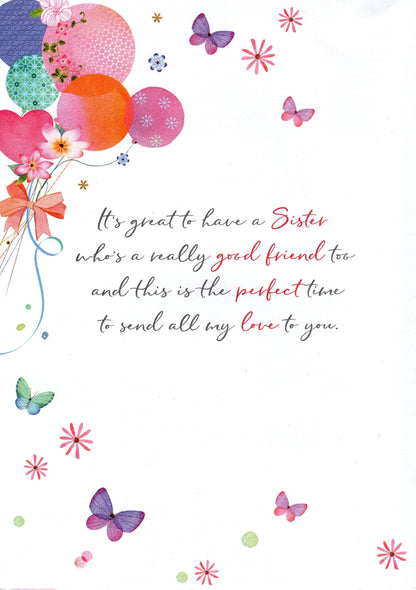 It's great to have a Sister
who's a really good friend too
and this is the perfect time
to send all my love to you.